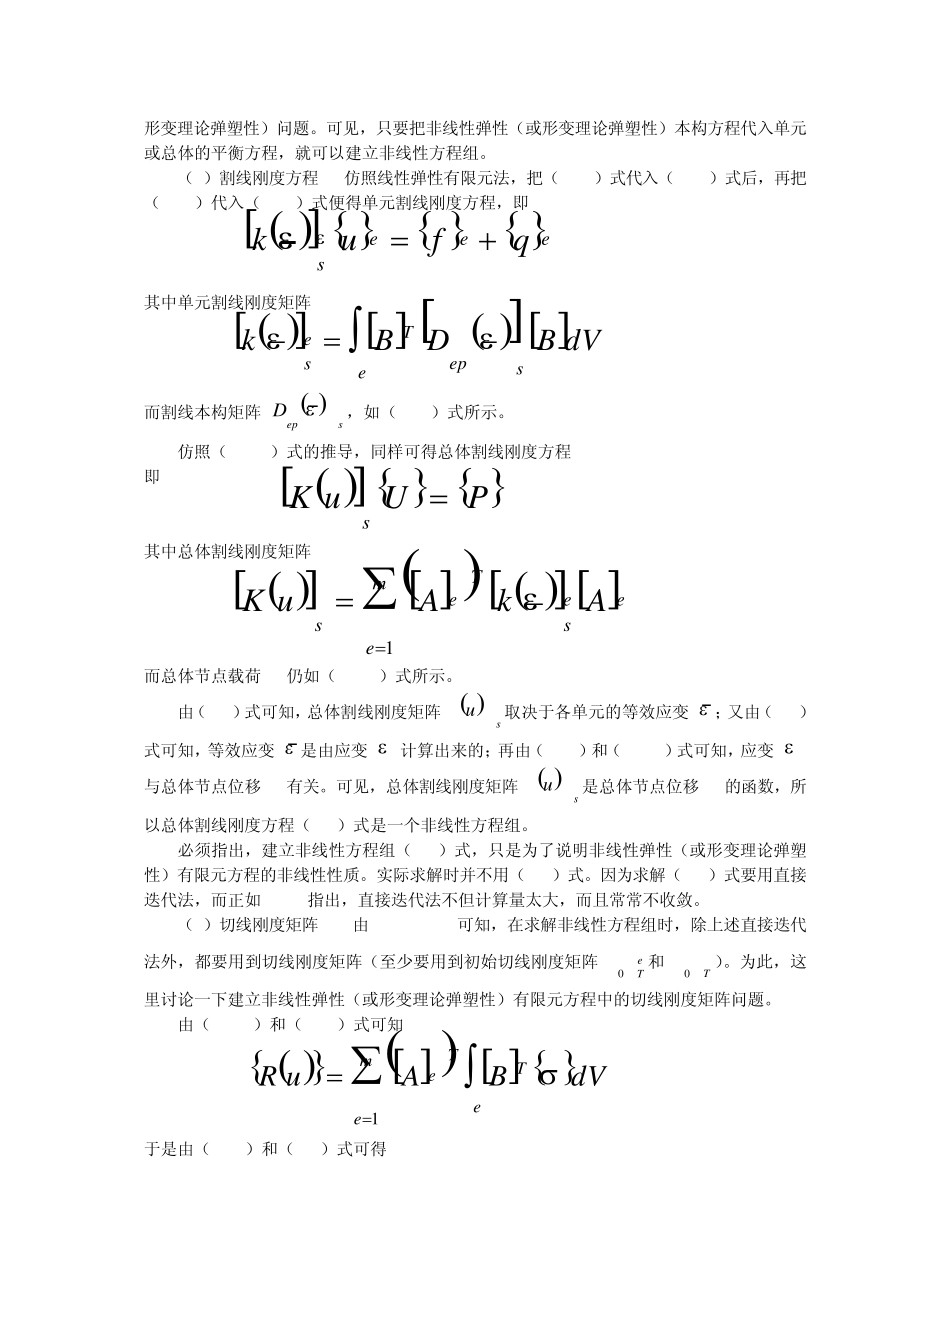 形变理论弹塑性）问题。可见，只要把非线性弹性（或形变理论弹塑性）本构方程代入单元
或总体的平衡方程，就可以建立非线性方程组。
（ ）割线刚度方程 仿照线性弹性有限元法，把（ ）式代入（ ）式后，再把
（ ）代入（ ）式便得单元割线刚度方程，即
[k(ε̄)]εs {u}e = {f}e + {q}e
其中单元割线刚度矩阵
[k(ε̄)]es = ∫e [B]T [Dep(ε̄)]s [B]dV
而割线本构矩阵 Dep(ε̄)s，如（ ）式所示。
仿照（ ）式的推导，同样可得总体割线刚度方程
即 [K(u)]s {U} = {P}
其中总体割线刚度矩阵
[K(u)]s = ∑me=1 ([A]e)T [k(ε̄)]es [A]e
而总体节点载荷 仍如（ ）式所示。
由（ ）式可知，总体割线刚度矩阵 (u)s 取决于各单元的等效应变 ε̄；又由（ ）
式可知，等效应变 ε̄ 是由应变 ε 计算出来的；再由（ ）和（ ）式可知，应变 ε
与总体节点位移 有关。可见，总体割线刚度矩阵 (u)s 是总体节点位移 的函数，所
以总体割线刚度方程（ ）式是一个非线性方程组。
必须指出，建立非线性方程组（ ）式，只是为了说明非线性弹性（或形变理论弹塑
性）有限元方程的非线性性质。实际求解时并不用（ ）式。因为求解（ ）式要用直接
迭代法，而正如 指出，直接迭代法不但计算量太大，而且常常不收敛。
（ ）切线刚度矩阵 由 可知，在求解非线性方程组时，除上述直接迭代
法外，都要用到切线刚度矩阵（至少要用到初始切线刚度矩阵 0 eT 和 0 T）。为此，这
里讨论一下建立非线性弹性（或形变理论弹塑性）有限元方程中的切线刚度矩阵问题。
由（ ）和（ ）式可知
{R(u)} = ∑me=1 ([A]e)T ∫e [B]T {σ}dV
于是由（ ）和（ ）式可得